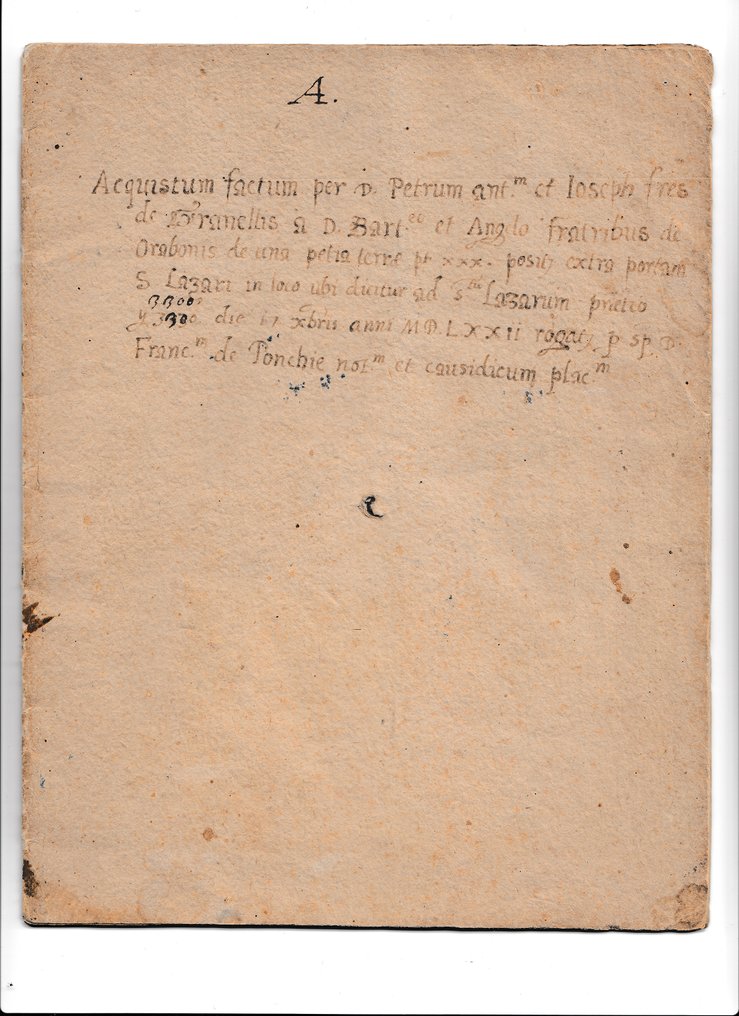 A.
Acquistum factum per D. Petrum ant.m et Ioseph frēs
de Granellis a D. Bart.eo et Angelo fratribus de
Orabonis de una petia terre pt xxx. posit; extra portam
S. Lazari in loco ubi dicitur ad S.tu Lazarum pretio
3300
3300 die 17 xbris anni MD.LXXii rogat; p sp. D.
Franc.m de Ponchie not.m et causidicum plac.m